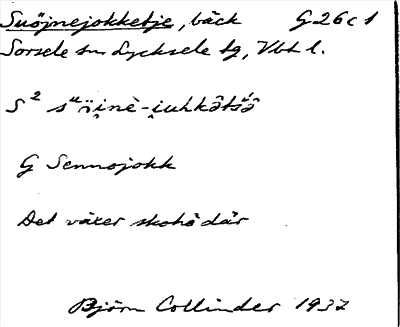 Suöjnejokketje, bäck G26c1
Sorsele sn Lycksele tg, Vbt l.
S² sᵘöi̯nè-i̯uhkâtśâ
G Sennojokk
Det växer skohö där
Björn Collinder 1937